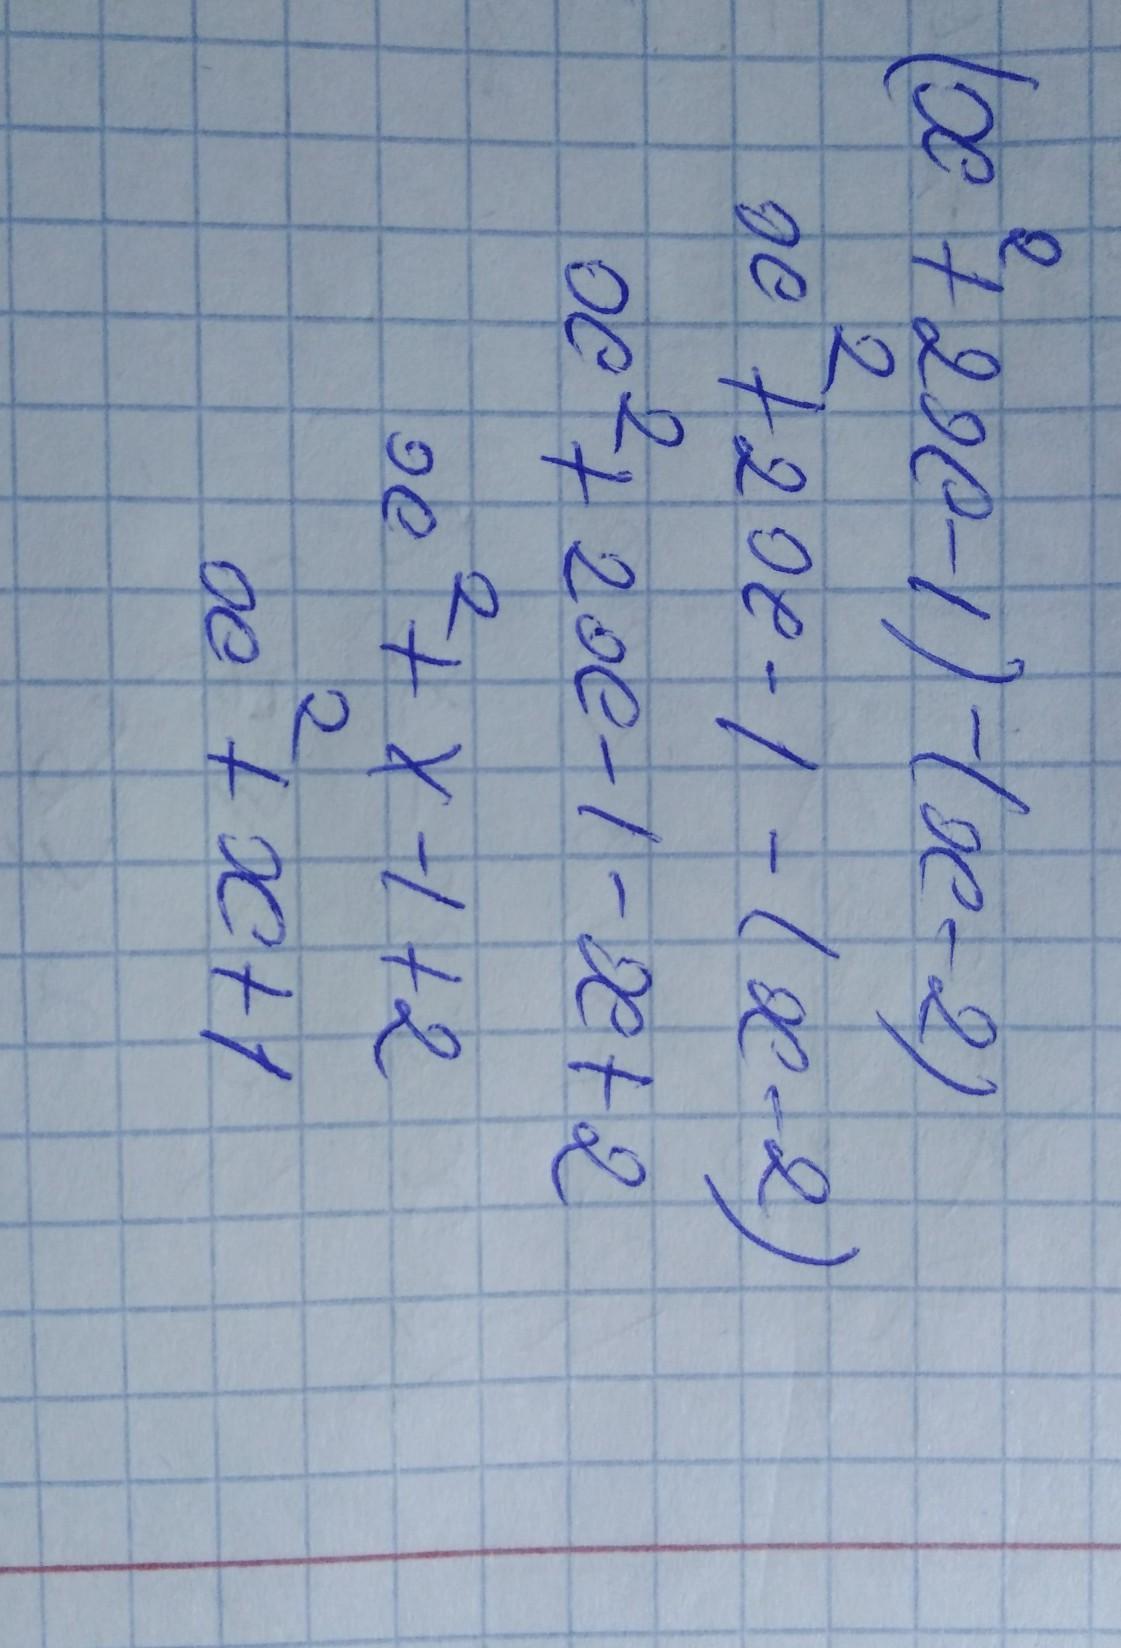 (x² + 2x - 1) - (x - 2)
x² + 2x - 1 - (x - 2)
x² + 2x - 1 - x + 2
x² + x - 1 + 2
x² + x + 1